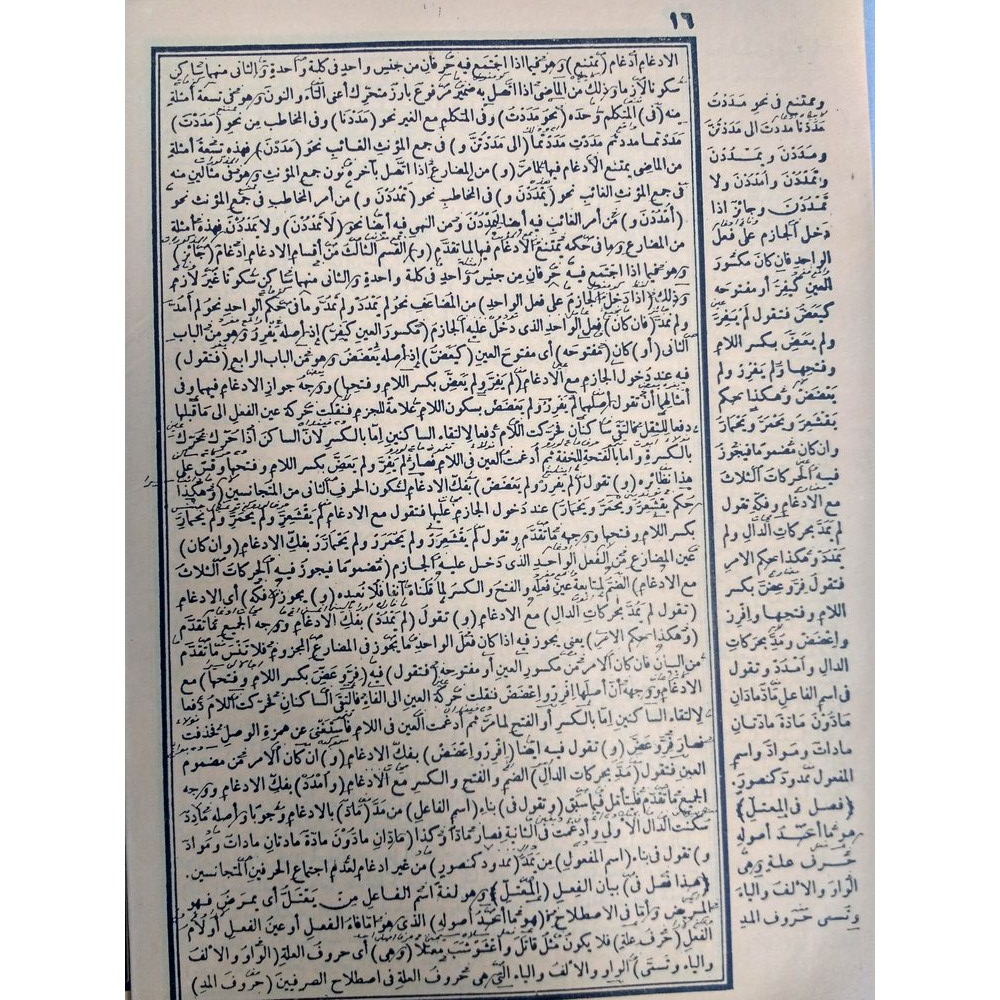 ١٦
الادغام ادغام (ممتنع) وهو فيما اذا اجتمع فيه حرفان من جنس واحد في كلمة واحدة والثاني منهما ساكن
سكونا لازما وذلك من الماضي اذا اتصل به ضمير مرفوع بارز متحرك أعنى التاء والنون وهو في تسعة أمثلة
منه (في) المتكلم وحده (نحو مددت) وفي المتكلم مع الغير نحو (مددنا) وفي المخاطب من نحو (مددت)
مددتما مددتم مددت مددتما (الى مددتن و) في جمع المؤنث الغائب نحو (مددن) فهذه تسعة أمثلة
من الماضي يمتنع الادغام فيها لما مر (و) من المضارع اذا اتصل بآخره نون جمع المؤنث وهو في مثالين منه
في جمع المؤنث الغائب نحو (يمددن و) في المخاطب نحو (تمددن و) من أمر المخاطب في جمع المؤنث نحو
(امددن و) من أمر الغائب فيه أيضا ليمددن ومن النهي فيه أيضا نحو (لا تمددن) ولا يمددن فهذه أمثلة
من المضارع وما في حكمه يمتنع الادغام فيها لما تقدم (و) القسم الثالث من أقسام الادغام ادغام (جائز)
وهو فيما اذا اجتمع فيه حرفان من جنس واحد في كلمة واحدة والثاني منهما ساكن سكونا غير لازم
وذلك (اذا دخل الجازم على فعل الواحد) من المضاعف نحو لم يمدد ولم تمدد وما في حكم الواحد نحو لم أمدد
ولم نمدد (فان كان) فعل الواحد الذى دخل عليه الجازم (مكسور العين كيفر) إذ أصله يفرر وهو من الباب
الثاني (أو) كان (مفتوحه) أى مفتوح العين (كيعض) إذ أصله يعضض وهو من الباب الرابع (فتقول)
فيه عند دخول الجازم مع الادغام (لم يفر ولم يعض بكسر اللام وفتحها) ووجه جواز الادغام فيهما وفي
أمثالهما أن تقول أصلهما لم يفرر ولم يعضض بسكون اللام علامة للجزم فنقلت حركة عين الفعل الى ما قبلها
دفعا للثقل فالتقى ساكنان فحركت اللام دفعا لالتقاء الساكنين اما بالكسر لان الساكن اذا حرك حرك
بالكسرة واما بالفتحة للخفة ثم أدغمت العين في اللام فصار لم يفر ولم يعض بكسر اللام وفتحها وقس على
هذا نظائره (و) تقول (لم يفرر ولم يعضض) بفك الادغام لسكون الحرف الثاني من المتجانسين (وهكذا
حكم يقشعر ويحمر ويحمار) عند دخول الجازم عليها فتقول مع الادغام لم يقشعر ولم يحمر ولم يحمار
بكسر اللام وفتحها ووجهه ما تقدم وتقول لم يقشعرر ولم يحمرر ولم يحمارر بفك الادغام (وان كان)
عين المضارع من الفعل الواحد الذى دخل عليه الجازم (مضموما فيجوز فيه الحركات الثلاث
مع الادغام) الضم لمتابعة عين فعله والفتح والكسر لما قلناه آنفا فلا نعيده (و) يجوز (فكه) أى الادغام
(تقول لم يمد بحركات الدال) مع الادغام (و) تقول (لم يمدد) بفك الادغام ووجه الجميع ما تقدم
(وهكذا حكم الامر) يعنى يجوز فيه اذا كان فعل الواحد ما يجوز في المضارع المجزوم فلا تنس ما تقدم
من البيان فان كان الامر من مكسور العين أو مفتوحه (فتقول) فيه (فر وعض بكسر اللام وفتحها) مع
الادغام ووجهه أن أصلهما افرر واعضض فنقلت حركة العين الى الفاء فالتقى الساكنان فحركت اللام دفعا
لالتقاء الساكنين اما بالكسر أو الفتح لما مر ثم أدغمت العين في اللام فاستغنى عن همزة الوصل فحذفت
فصار فر وعض (و) تقول فيه أيضا (افرر واعضض) بفك الادغام (و) ان كان الامر من مضموم
العين فتقول (مد بحركات الدال) الضم والفتح والكسر مع الادغام (وامدد) بفك الادغام ووجه
الجميع ما تقدم فليتأمل فيما سبق (و تقول في) بناء (اسم الفاعل) من مد (ماد) بالادغام وجوبا وأصله مادد
سكنت الدال الاولى وأدغمت في الثانية فصار ماد وكذا (مادان مادون مادة مادتان مادات ومواد
و) تقول في بناء (اسم المفعول) من يمد (ممدود كمنصور) من غير ادغام لعدم اجتماع الحرفين المتجانسين.
(هذا فصل في) بيان الفعل (المعتل) وهو لغة اسم الفاعل من يعتل أى يمرض فهو
المريض وأما في الاصطلاح (فهو ما أحد أصوله) الذى هو اما فاء الفعل أو عين الفعل أو لام
الفعل (حرف علة) فلا يكون مثل قاتل واعشوشب معتلا (وهي) أى حروف العلة (الواو والالف
والياء وتسمى) الواو والالف والياء التي هي حروف العلة في اصطلاح الصرفيين (حروف المد)
وممتنع في نحو مددت
مددنا مددت الى مددتن
ومددن ويمددن
وتمددن وامددن ولا
تمددن وجائز اذا
دخل الجازم على فعل
الواحد فان كان مكسور
العين كيفر أو مفتوحه
كيعض فتقول لم يفر
ولم يعض بكسر اللام
وفتحها ولم يفرر ولم
يعضض وهكذا حكم
يقشعر ويحمر ويحمار
وان كان مضموما فيجوز
فيه الحركات الثلاث
مع الادغام وفكه تقول
لم يمد بحركات الدال ولم
يمدد وهكذا حكم الامر
فتقول فر وعض بكسر
اللام وفتحها وافرر
واعضض ومد بحركات
الدال وامدد وتقول
في اسم الفاعل ماد مادان
مادون مادة مادتان
مادات ومواد واسم
المفعول ممدود كمنصور.
﴿فصل في المعتل﴾
هو ما أحد أصوله
حرف علة وهي
الواو والالف والياء
وتسمى حروف المد